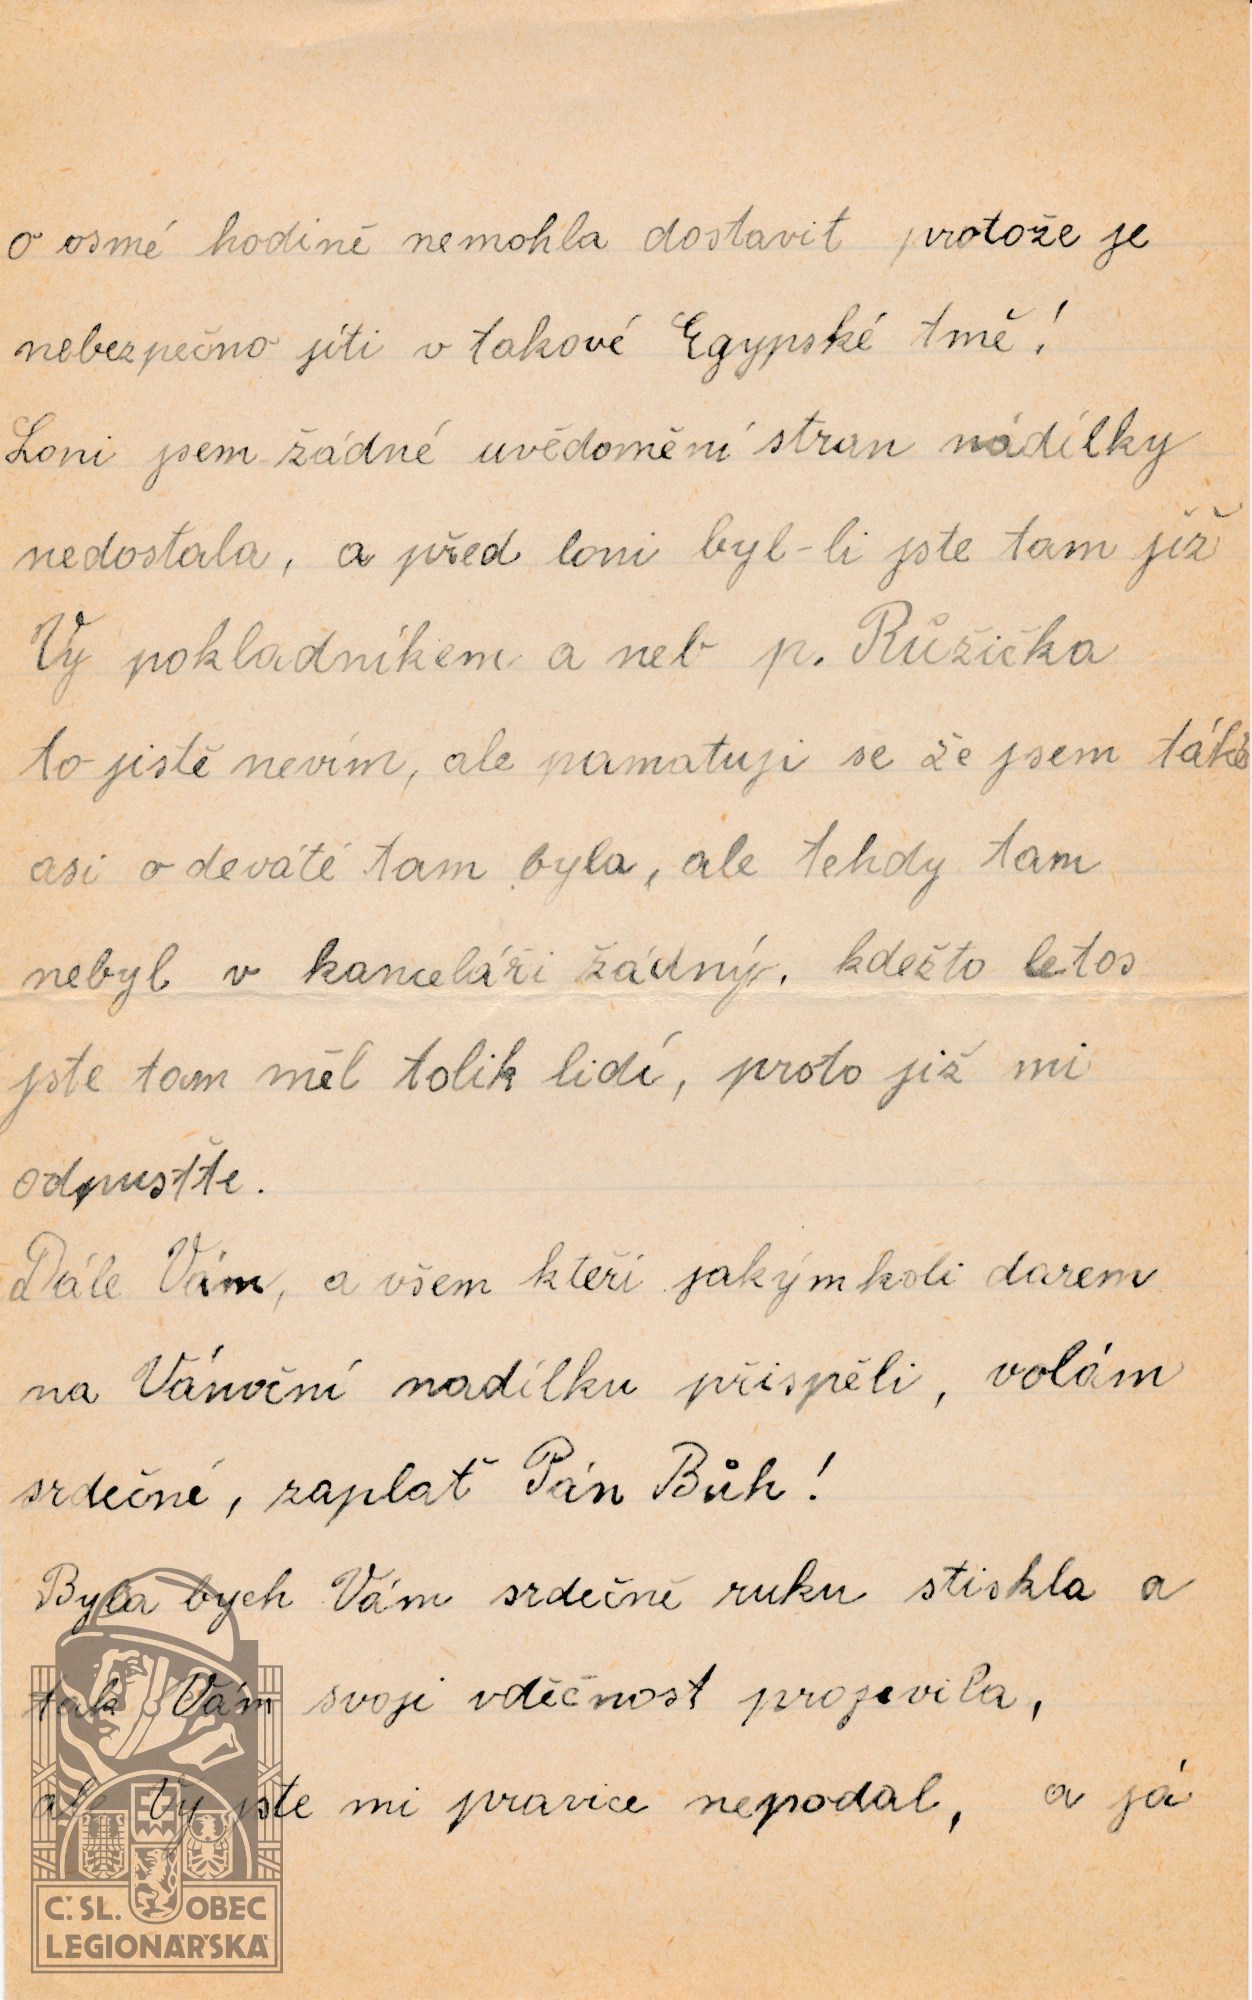 o osmé hodině nemohla dostavit protože je
nebezpečno jíti v takové Egypské tmě!
Loni jsem žádné uvědomění stran nádílky
nedostala, a před loni byl-li jste tam již
Vy pokladníkem a neb p. Růžička
to jistě nevím, ale pamatuji se že jsem táké
asi o deváté tam byla, ale tehdy tam
nebyl v kanceláři žádný, kdežto letos
jste tam měl tolik lidí, proto již mi
odpusťte.
Dále Vám, a všem kteří jakýmkoli darem
na Vánoční nadílku přispěli, volám
srdečné, zaplať Pán Bůh!
Byla bych Vám srdečně ruku stiskla a
tak Vám svoji vděčnost projevila,
ale Vy jste mi pravice nepodal, a já
Č. SL. OBEC
LEGIONÁŘSKÁ